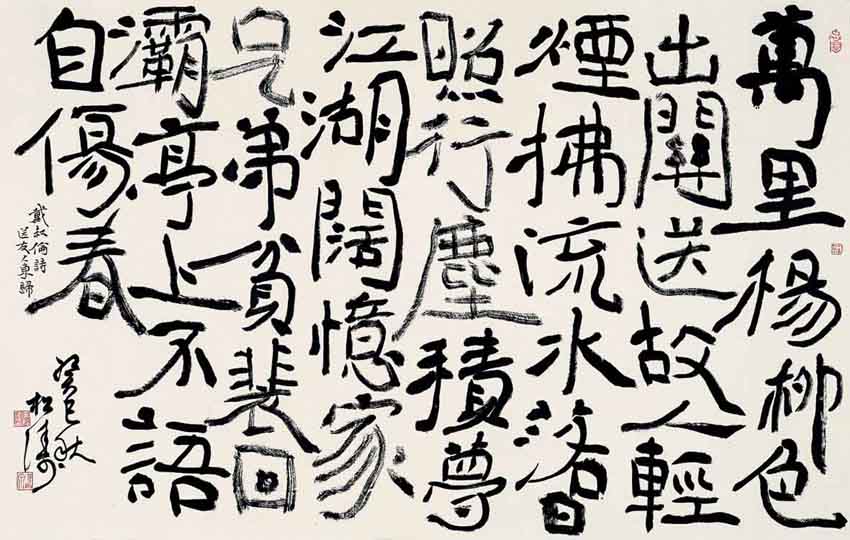 萬里楊柳色
出關送故人輕
煙拂流水落日
照行塵積夢
江湖闊憶家
兄弟貧裴回
灞亭上不語
自傷春
戴叔倫詩
送友人東歸
癸巳秋
松濤